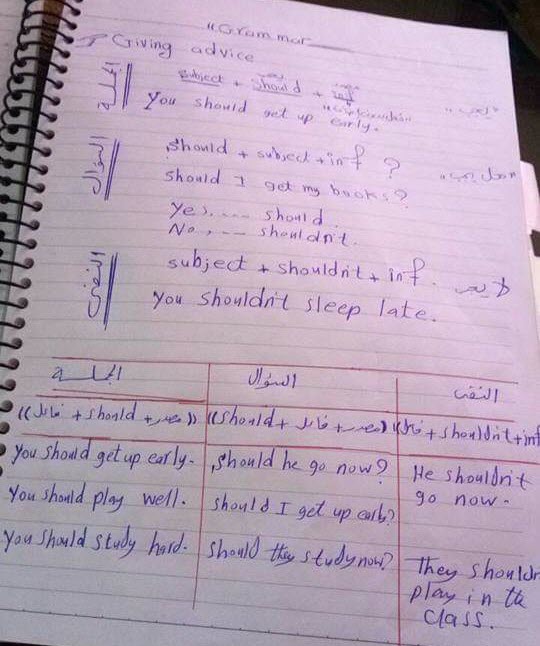 "Grammar
Giving advice
الجملة
subject + should + inf
You should get up early.
"يجب"
السؤال
should + subject + inf ?
"هل يجب"
should I get my books?
Yes, --- should.
No, --- shouldn't.
النفى
subject + shouldn't + inf. لا يجب
you shouldn't sleep late.
الجملة السؤال النفى
((فاعل + should + مصدر)) ((should + فاعل + مصدر)) فاعل + shouldn't + inf
You should get up early. should he go now? He shouldn't
go now.
You should play well. should I get up early?
You should study hard. should they study now? They shouldn
play in the
class.